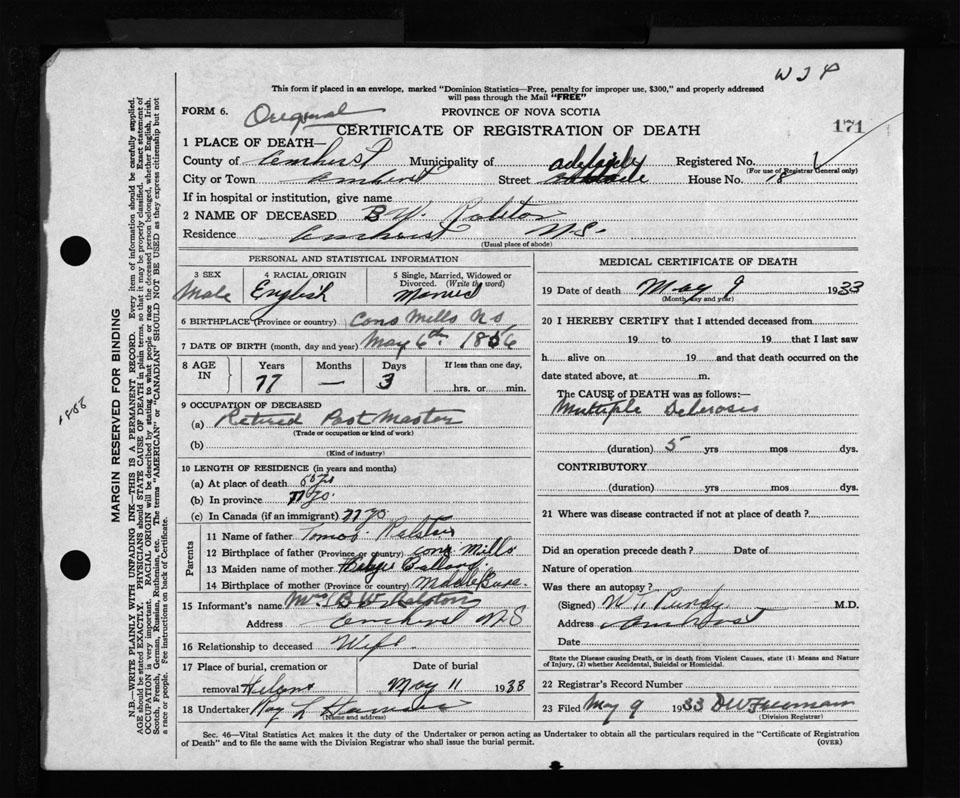 W J P
This form if placed in an envelope, marked "Dominion Statistics—Free, penalty for improper use, $300," and properly addressed
will pass through the Mail "FREE"
FORM 6. Original PROVINCE OF NOVA SCOTIA
CERTIFICATE OF REGISTRATION OF DEATH 171
1 PLACE OF DEATH—
County of Amherst Municipality of Registered No.
(For use of Registrar General only)
City or Town Amherst Street House No. 18
If in hospital or institution, give name
2 NAME OF DECEASED B W. Ralston
Residence Amherst N.S.
(Usual place of abode)
PERSONAL AND STATISTICAL INFORMATION
3 SEX 4 RACIAL ORIGIN 5 Single, Married, Widowed or Divorced. (Write the word)
Male English Married
6 BIRTHPLACE (Province or country) Mills N S
7 DATE OF BIRTH (month, day and year) May 6th 1856
8 AGE IN Years Months Days If less than one day,
77 — 3 hrs. or min.
9 OCCUPATION OF DECEASED
(a) Retired Post Master
(Trade or occupation or kind of work)
(b)
(Kind of industry)
10 LENGTH OF RESIDENCE (in years and months)
(a) At place of death yrs
(b) In province 77 yrs.
(c) In Canada (if an immigrant) 77 yrs
Parents
11 Name of father
12 Birthplace of father (Province or country) Mills
13 Maiden name of mother
14 Birthplace of mother (Province or country)
15 Informant's name Mrs B W Ralston
Address Amherst N S
16 Relationship to deceased Wife
17 Place of burial, cremation or Date of burial
removal May 11 1933
18 Undertaker
(Name and address)
MEDICAL CERTIFICATE OF DEATH
19 Date of death May 9 1933
(Month day and year)
20 I HEREBY CERTIFY that I attended deceased from
19 to 19 that I last saw
h alive on 19 and that death occurred on the
date stated above, at m.
The CAUSE of DEATH was as follows:—
Multiple Sclerosis
(duration) 5 yrs mos dys.
CONTRIBUTORY
(duration) yrs mos dys.
21 Where was disease contracted if not at place of death?
Did an operation precede death? Date of
Nature of operation
Was there an autopsy?
(Signed) W. T. Purdy M.D.
Address Amherst
Date
State the Disease causing Death, or in death from Violent Causes, state (1) Means and Nature
of Injury, (2) whether Accidental, Suicidal or Homicidal.
22 Registrar's Record Number
23 Filed May 9 1933 D W Freeman
(Division Registrar)
Sec. 46—Vital Statistics Act makes it the duty of the Undertaker or person acting as Undertaker to obtain all the particulars required in the "Certificate of Registration
of Death" and to file the same with the Division Registrar who shall issue the burial permit.
(OVER)
MARGIN RESERVED FOR BINDING
N.B.—WRITE PLAINLY WITH UNFADING INK—THIS IS A PERMANENT RECORD. Every item of information should be carefully supplied.
AGE should be stated EXACTLY. PHYSICIANS should STATE CAUSE OF DEATH in plain terms, so that it may be properly classified. Exact statement of
OCCUPATION is very important. RACIAL ORIGIN will be described by stating to what people or race the deceased person belonged, whether English, Irish,
Scotch, French, German, Russian, Ruthenian, etc. The terms "AMERICAN" or "CANADIAN" SHOULD NOT BE USED as they express citizenship but not
a race or people. Fee instructions on back of Certificate.